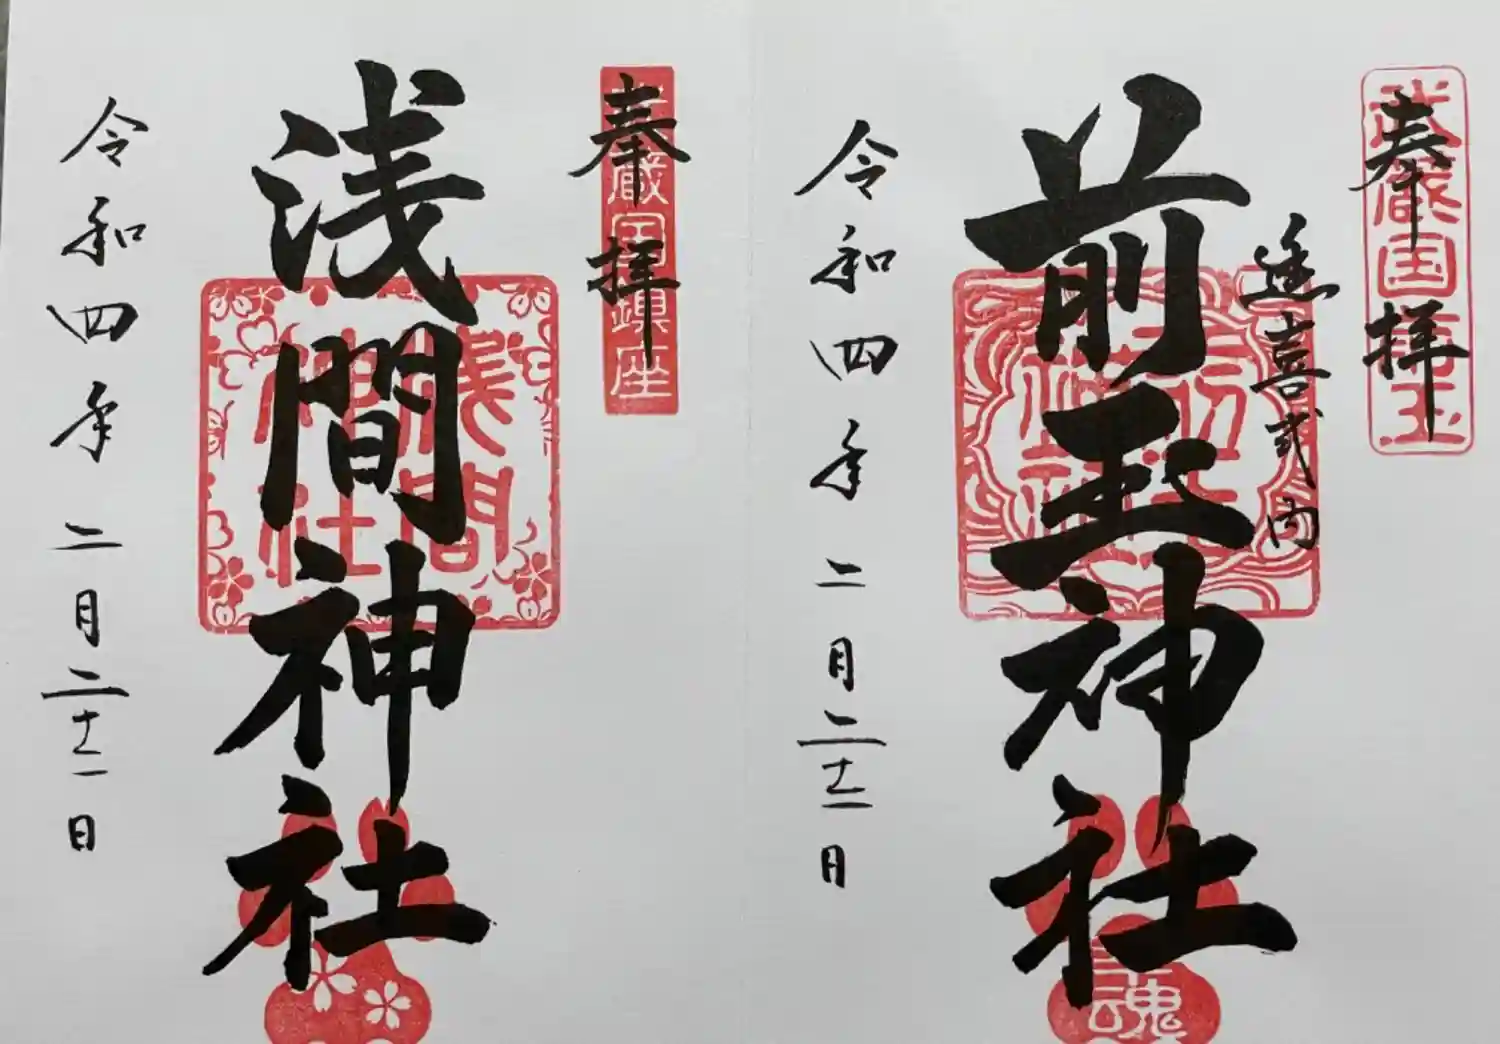 奉拝
武蔵国埼玉
延喜式内
前玉神社
前玉
神社
魂
令和四年二月二十二日
奉拝
武蔵国鎮座
浅間神社
浅間
神社
令和四年二月二十二日